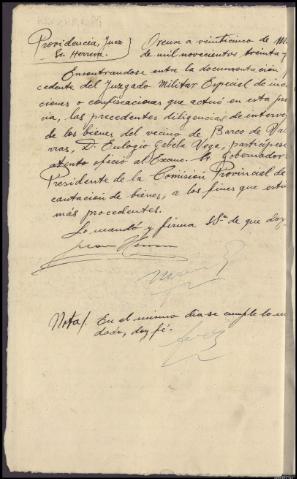 Providencia, Juez
Sr. Herrera
Orense a veinticinco de
de mil novecientos treinta y
Encontrandose entre la documentación
cedente del Juzgado Militar Especial de
ciones o confiscaciones que actuó en esta
cia, las precedentes diligencias de interve
de los bienes del vecino de Barco de Val
rras, D. Eulogio Vega, participese
atento oficio al Excmo. Sr. Gobernador
Presidente de la Comisión Provincial de
cautación de bienes, a los fines que estime
más procedentes.
Lo mandó y firma Sª. de que doy
Nota/. En el mismo dia se cumple lo man
dado, doy fé.